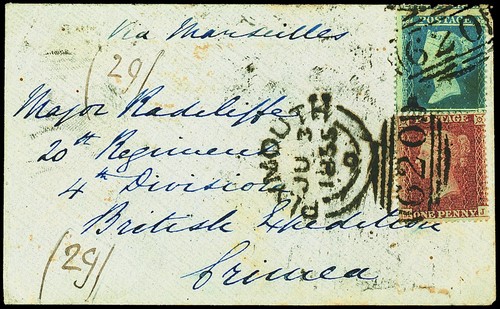 Via Marseilles
(29)
Major Radcliffe
20th Regiment
4th Division
British Expedition
Crimea
(29)
POSTAGE
620
POSTAGE
ONE PENNY
J
620
MOUTH
JU 3
1855